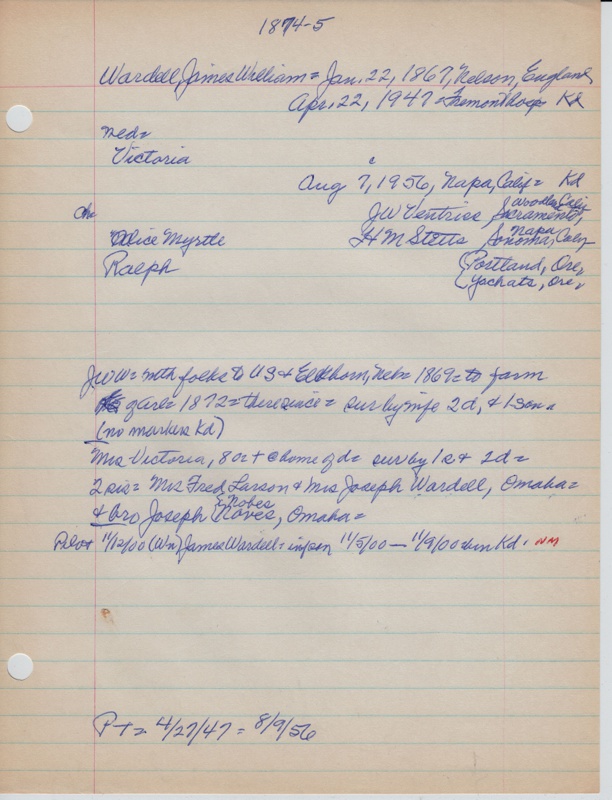 1874-5
Wardell, James William = Jan. 22, 1867, Nelson, England
Apr. 22, 1947 = Fremont Hosp Kd
med =
Victoria
Aug 7, 1956, Napa, Calif = Kd
ch JW Ventriss, Sacramento, Calif
Alice Myrtle HM Stetts Napa Sonoma, Calif
Ralph {Portland, Ore,
{Yachats, Ore,
JWW = with folks to US & Elkhorn, Neb = 1869 = to farm
1872 = there since = sur by wife 2d, & 1 son =
(no markers Kd)
Mrs Victoria, 80 + @ home of d = sur by 1s & 2d =
2 sis = Mrs Fred Larson & Mrs Joseph Wardell, Omaha =
& bro Joseph {Nobes Noves, Omaha =
Pilot 11/12/00 (Wn) James Wardell = inf son 11/5/00 — 11/9/00 = bur Kd. NM
PT = 4/27/47 = 8/9/56